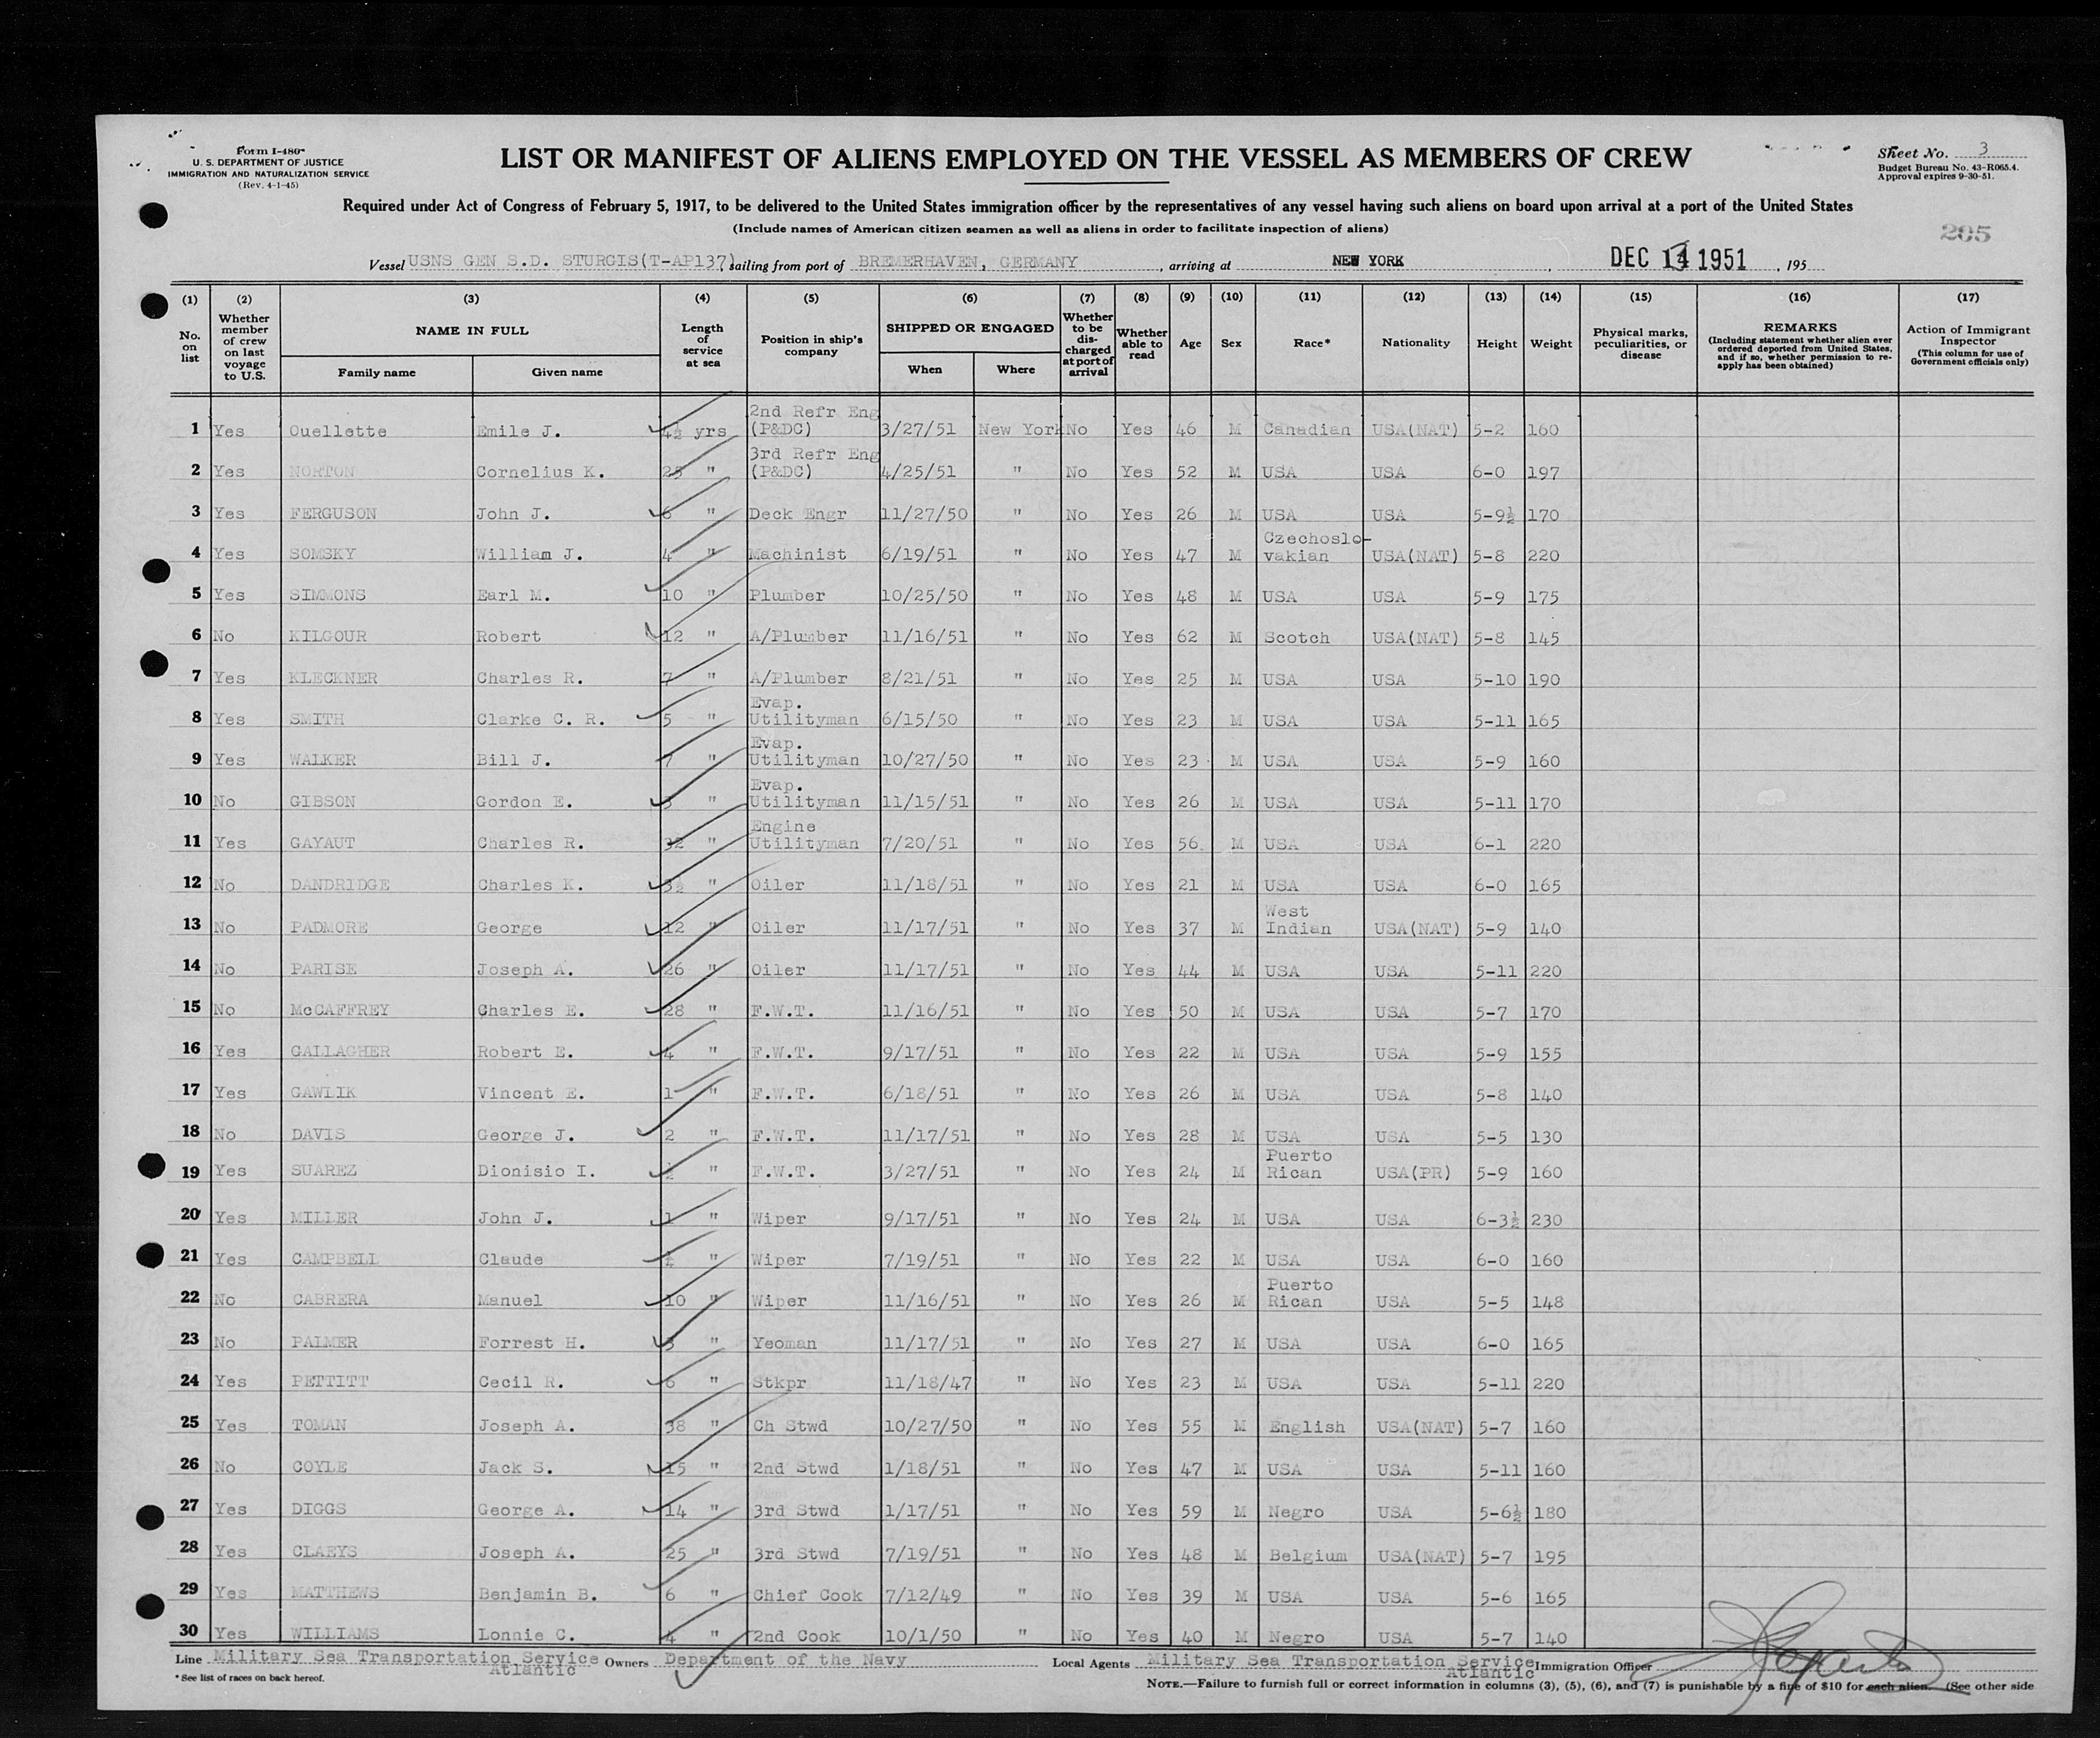 Form I-480
U. S. DEPARTMENT OF JUSTICE
IMMIGRATION AND NATURALIZATION SERVICE
(Rev. 4-1-45)
LIST OR MANIFEST OF ALIENS EMPLOYED ON THE VESSEL AS MEMBERS OF CREW
Sheet No. 3
Budget Bureau No. 43-R065.4.
Approval expires 9-30-51.
Required under Act of Congress of February 5, 1917, to be delivered to the United States immigration officer by the representatives of any vessel having such aliens on board upon arrival at a port of the United States
(Include names of American citizen seamen as well as aliens in order to facilitate inspection of aliens)
205
Vessel USNS GEN S.D. STURGIS(T-AP137), sailing from port of BREMERHAVEN, GERMANY, arriving at NEW YORK, DEC 14 1951, 195
(1) (2) (3) (4) (5) (6) (7) (8) (9) (10) (11) (12) (13) (14) (15) (16) (17)
No. on list
Whether member of crew on last voyage to U.S.
NAME IN FULL
Family name Given name
Length of service at sea
Position in ship's company
SHIPPED OR ENGAGED
When Where
Whether to be discharged at port of arrival
Whether able to read
Age
Sex
Race*
Nationality
Height
Weight
Physical marks, peculiarities, or disease
REMARKS
(Including statement whether alien ever ordered deported from United States, and if so, whether permission to reapply has been obtained)
Action of Immigrant Inspector
(This column for use of Government officials only)
1 Yes Ouellette Emile J. 4½ yrs 2nd Refr Eng (P&DC) 3/27/51 New York No Yes 46 M Canadian USA(NAT) 5-2 160
2 Yes NORTON Cornelius K. 25 " 3rd Refr Eng (P&DC) 4/25/51 " No Yes 52 M USA USA 6-0 197
3 Yes FERGUSON John J. 6 " Deck Engr 11/27/50 " No Yes 26 M USA USA 5-9½ 170
4 Yes SOMSKY William J. 4 " Machinist 6/19/51 " No Yes 47 M Czechoslo-vakian USA(NAT) 5-8 220
5 Yes SIMMONS Earl M. 10 " Plumber 10/25/50 " No Yes 48 M USA USA 5-9 175
6 No KILGOUR Robert 12 " A/Plumber 11/16/51 " No Yes 62 M Scotch USA(NAT) 5-8 145
7 Yes KLECKNER Charles R. 7 " A/Plumber 8/21/51 " No Yes 25 M USA USA 5-10 190
8 Yes SMITH Clarke C. R. 5 " Evap. Utilityman 6/15/50 " No Yes 23 M USA USA 5-11 165
9 Yes WALKER Bill J. 7 " Evap. Utilityman 10/27/50 " No Yes 23 M USA USA 5-9 160
10 No GIBSON Gordon E. 3 " Evap. Utilityman 11/15/51 " No Yes 26 M USA USA 5-11 170
11 Yes GAYAUT Charles R. 32 " Engine Utilityman 7/20/51 " No Yes 56 M USA USA 6-1 220
12 No DANDRIDGE Charles K. 3½ " Oiler 11/18/51 " No Yes 21 M USA USA 6-0 165
13 No PADMORE George 12 " Oiler 11/17/51 " No Yes 37 M West Indian USA(NAT) 5-9 140
14 No PARISE Joseph A. 26 " Oiler 11/17/51 " No Yes 44 M USA USA 5-11 220
15 No McCAFFREY Charles E. 28 " F.W.T. 11/16/51 " No Yes 50 M USA USA 5-7 170
16 Yes GALLAGHER Robert E. 4 " F.W.T. 9/17/51 " No Yes 22 M USA USA 5-9 155
17 Yes GAWLIK Vincent E. 1 " F.W.T. 6/18/51 " No Yes 26 M USA USA 5-8 140
18 No DAVIS George J. 2 " F.W.T. 11/17/51 " No Yes 28 M USA USA 5-5 130
19 Yes SUAREZ Dionisio I. ½ " F.W.T. 3/27/51 " No Yes 24 M Puerto Rican USA(PR) 5-9 160
20 Yes MILLER John J. 1 " Wiper 9/17/51 " No Yes 24 M USA USA 6-3½ 230
21 Yes CAMPBELL Claude " Wiper 7/19/51 " No Yes 22 M USA USA 6-0 160
22 No CABRERA Manuel 10 " Wiper 11/16/51 " No Yes 26 M Puerto Rican USA 5-5 148
23 No PALMER Forrest H. 3 " Yeoman 11/17/51 " No Yes 27 M USA USA 6-0 165
24 Yes PETTITT Cecil R. 6 " Stkpr 11/18/47 " No Yes 23 M USA USA 5-11 220
25 Yes TOMAN Joseph A. 38 " Ch Stwd 10/27/50 " No Yes 55 M English USA(NAT) 5-7 160
26 No COYLE Jack S. 15 " 2nd Stwd 1/18/51 " No Yes 47 M USA USA 5-11 160
27 Yes DIGGS George A. 14 " 3rd Stwd 1/17/51 " No Yes 59 M Negro USA 5-6½ 180
28 Yes CLAEYS Joseph A. 25 " 3rd Stwd 7/19/51 " No Yes 48 M Belgium USA(NAT) 5-7 195
29 Yes MATTHEWS Benjamin B. 6 " Chief Cook 7/12/49 " No Yes 39 M USA USA 5-6 165
30 Yes WILLIAMS Lonnie C. 4 " 2nd Cook 10/1/50 " No Yes 40 M Negro USA 5-7 140
Line Military Sea Transportation Service Atlantic Owners Department of the Navy Local Agents Military Sea Transportation Service Atlantic Immigration Officer
* See list of races on back hereof.
NOTE.—Failure to furnish full or correct information in columns (3), (5), (6), and (7) is punishable by a fine of $10 for each alien. (See other side